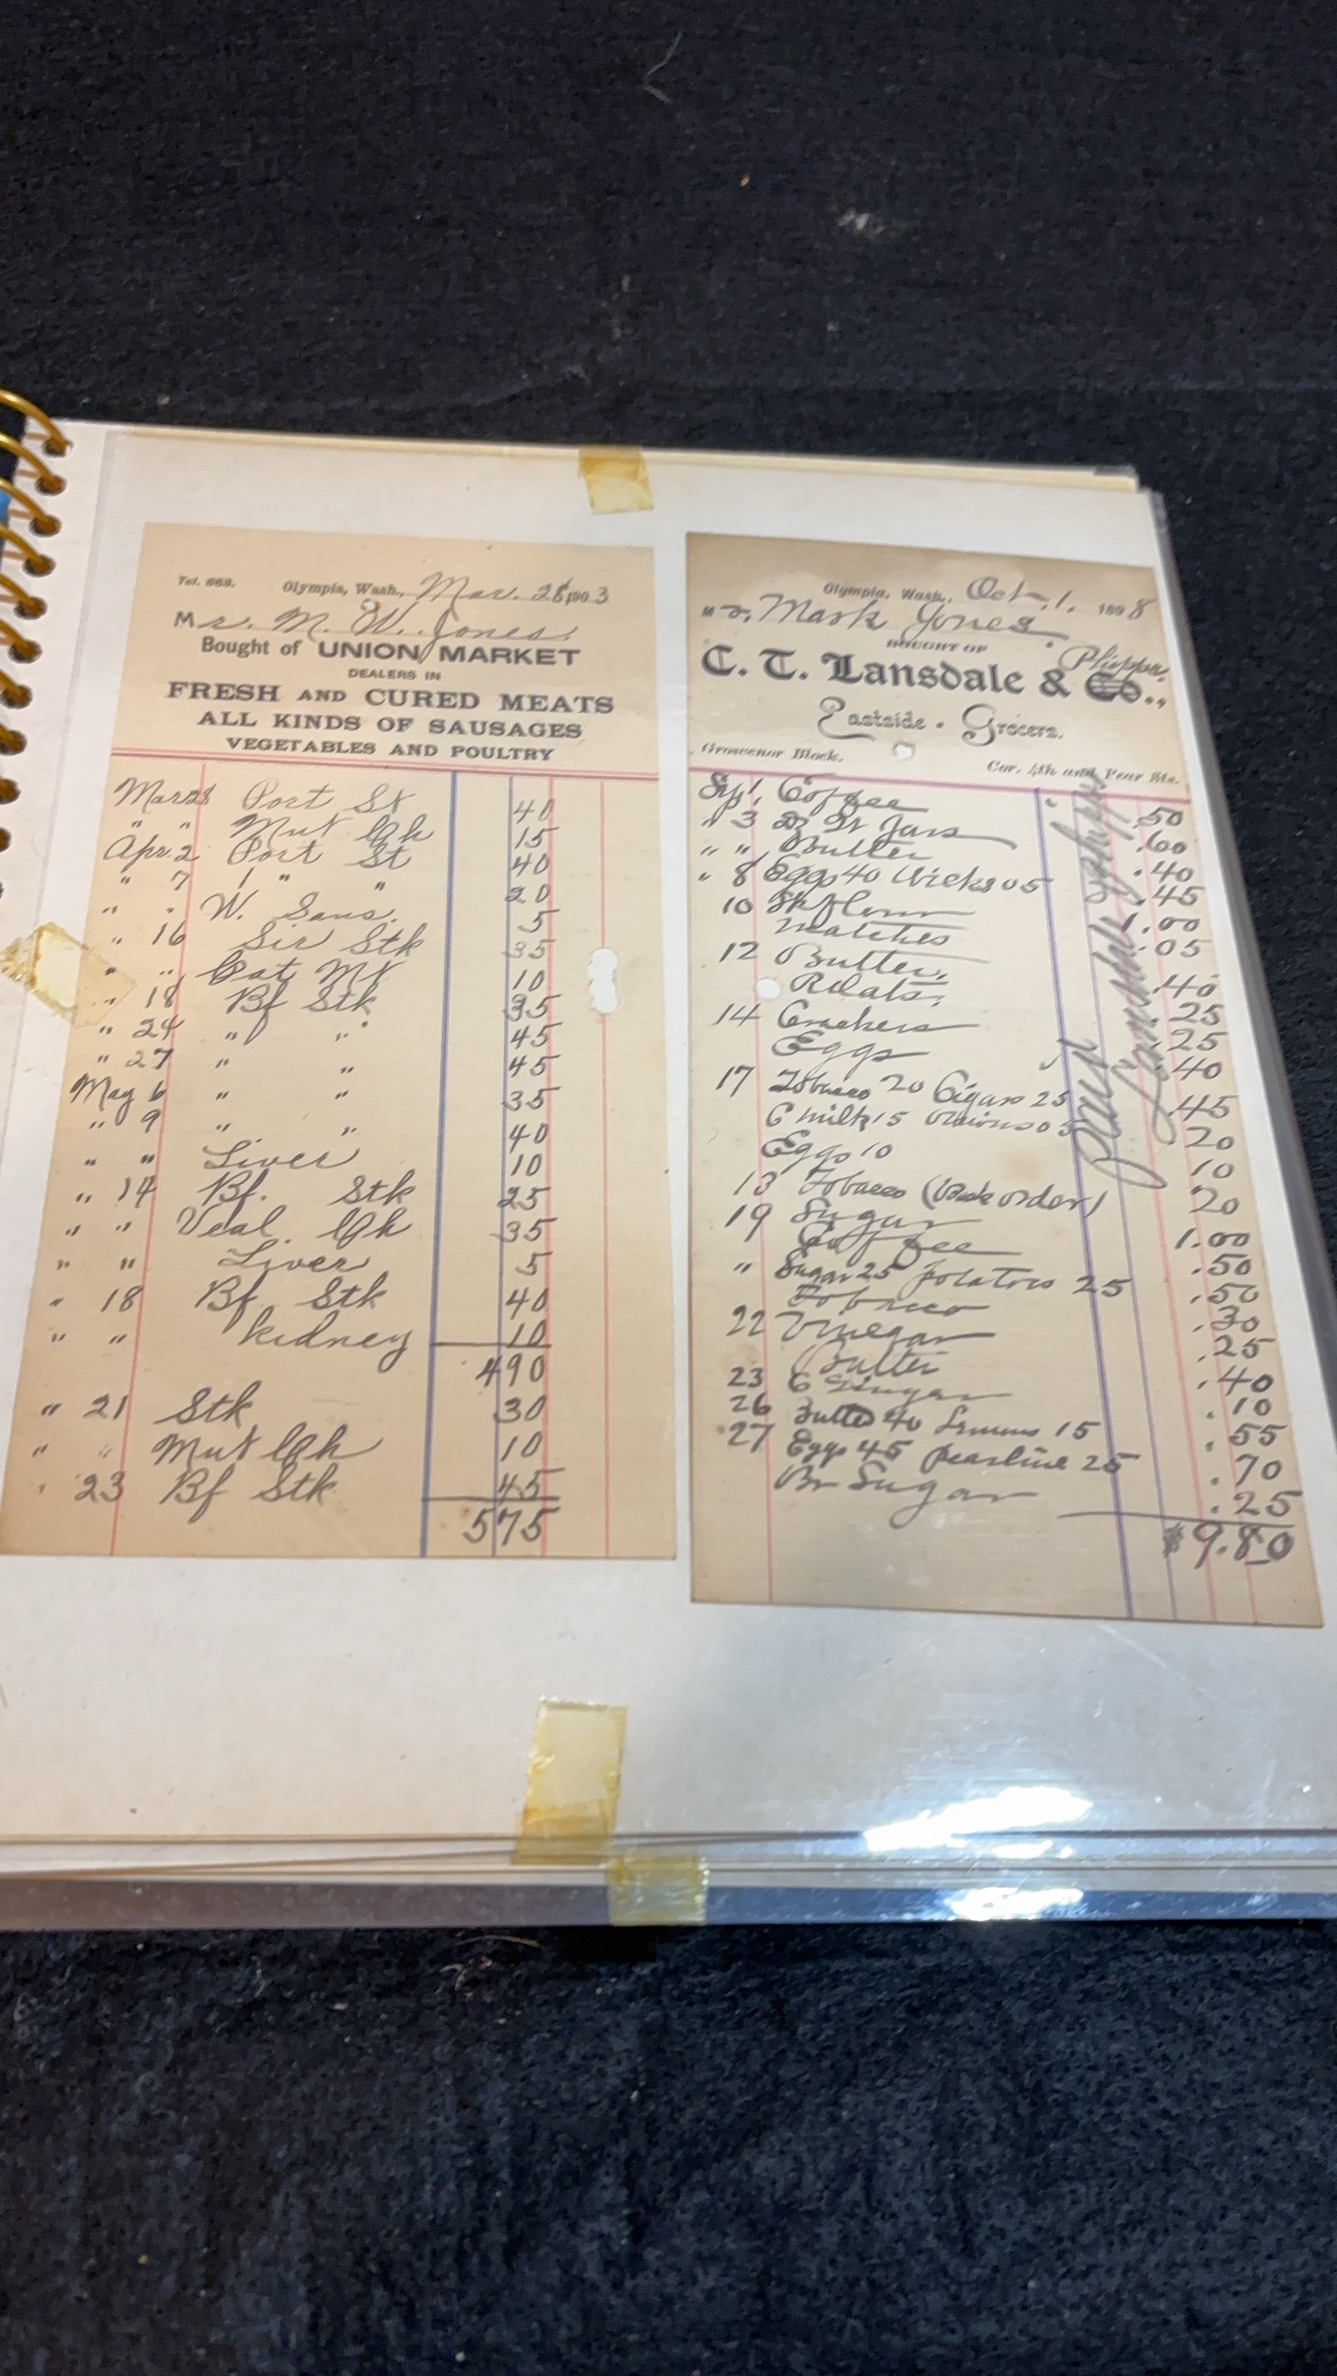 Tel. 663. Olympia, Wash., Mar. 28 1903
Mr. M. W. Jones.
Bought of UNION MARKET
DEALERS IN
FRESH AND CURED MEATS
ALL KINDS OF SAUSAGES
VEGETABLES AND POULTRY
Mar 28 Port St 40
" " Mut 15
Apr. 2 Port St 40
" 7 1 " " 20
" " W. Saus. 5
" 16 Sir Stk 35
" " 10
" 18 Bf Stk 35
" 24 " " 45
" 27 " " 45
May 6 " " 35
" 9 " " 40
" " Liver 10
" 14 Bf. Stk 25
" " Veal 35
" " Liver 5
" 18 Bf Stk 40
" " kidney 10
490
" 21 Stk 30
" " Mut 10
" 23 Bf Stk 45
575
Olympia, Wash., Oct. 1. 1898
Mr. Mark Jones
BOUGHT OF
C. T. Lansdale & Co.,
Eastside Grocers.
Grosvenor Block. Cor. 4th and Pear Sts.
Sep 1, Coffee .50
" 3 Jars .60
" " Butter .40
" 8 Eggs 40 Wicks 05 .45
10 1.00
Matches .05
12 Butter, .40
.25
14 Crackers .25
Eggs .40
17 Tobacco 20 Cigars 25 45
C milk 15 onions 05 20
Eggs 10 10
13 Tobacco (Back order) 20
19 Sugar 1.00
Coffee .50
" Sugar 25 potatoes 25 .50
Tobacco .30
22 Vinegar .25
Butter .40
23 G Ginger .10
26 Butter 40 Lemons 15 .55
27 Eggs 45 pearline 25 .70
Br Sugar .25
$9.80
Paid
Lansdale